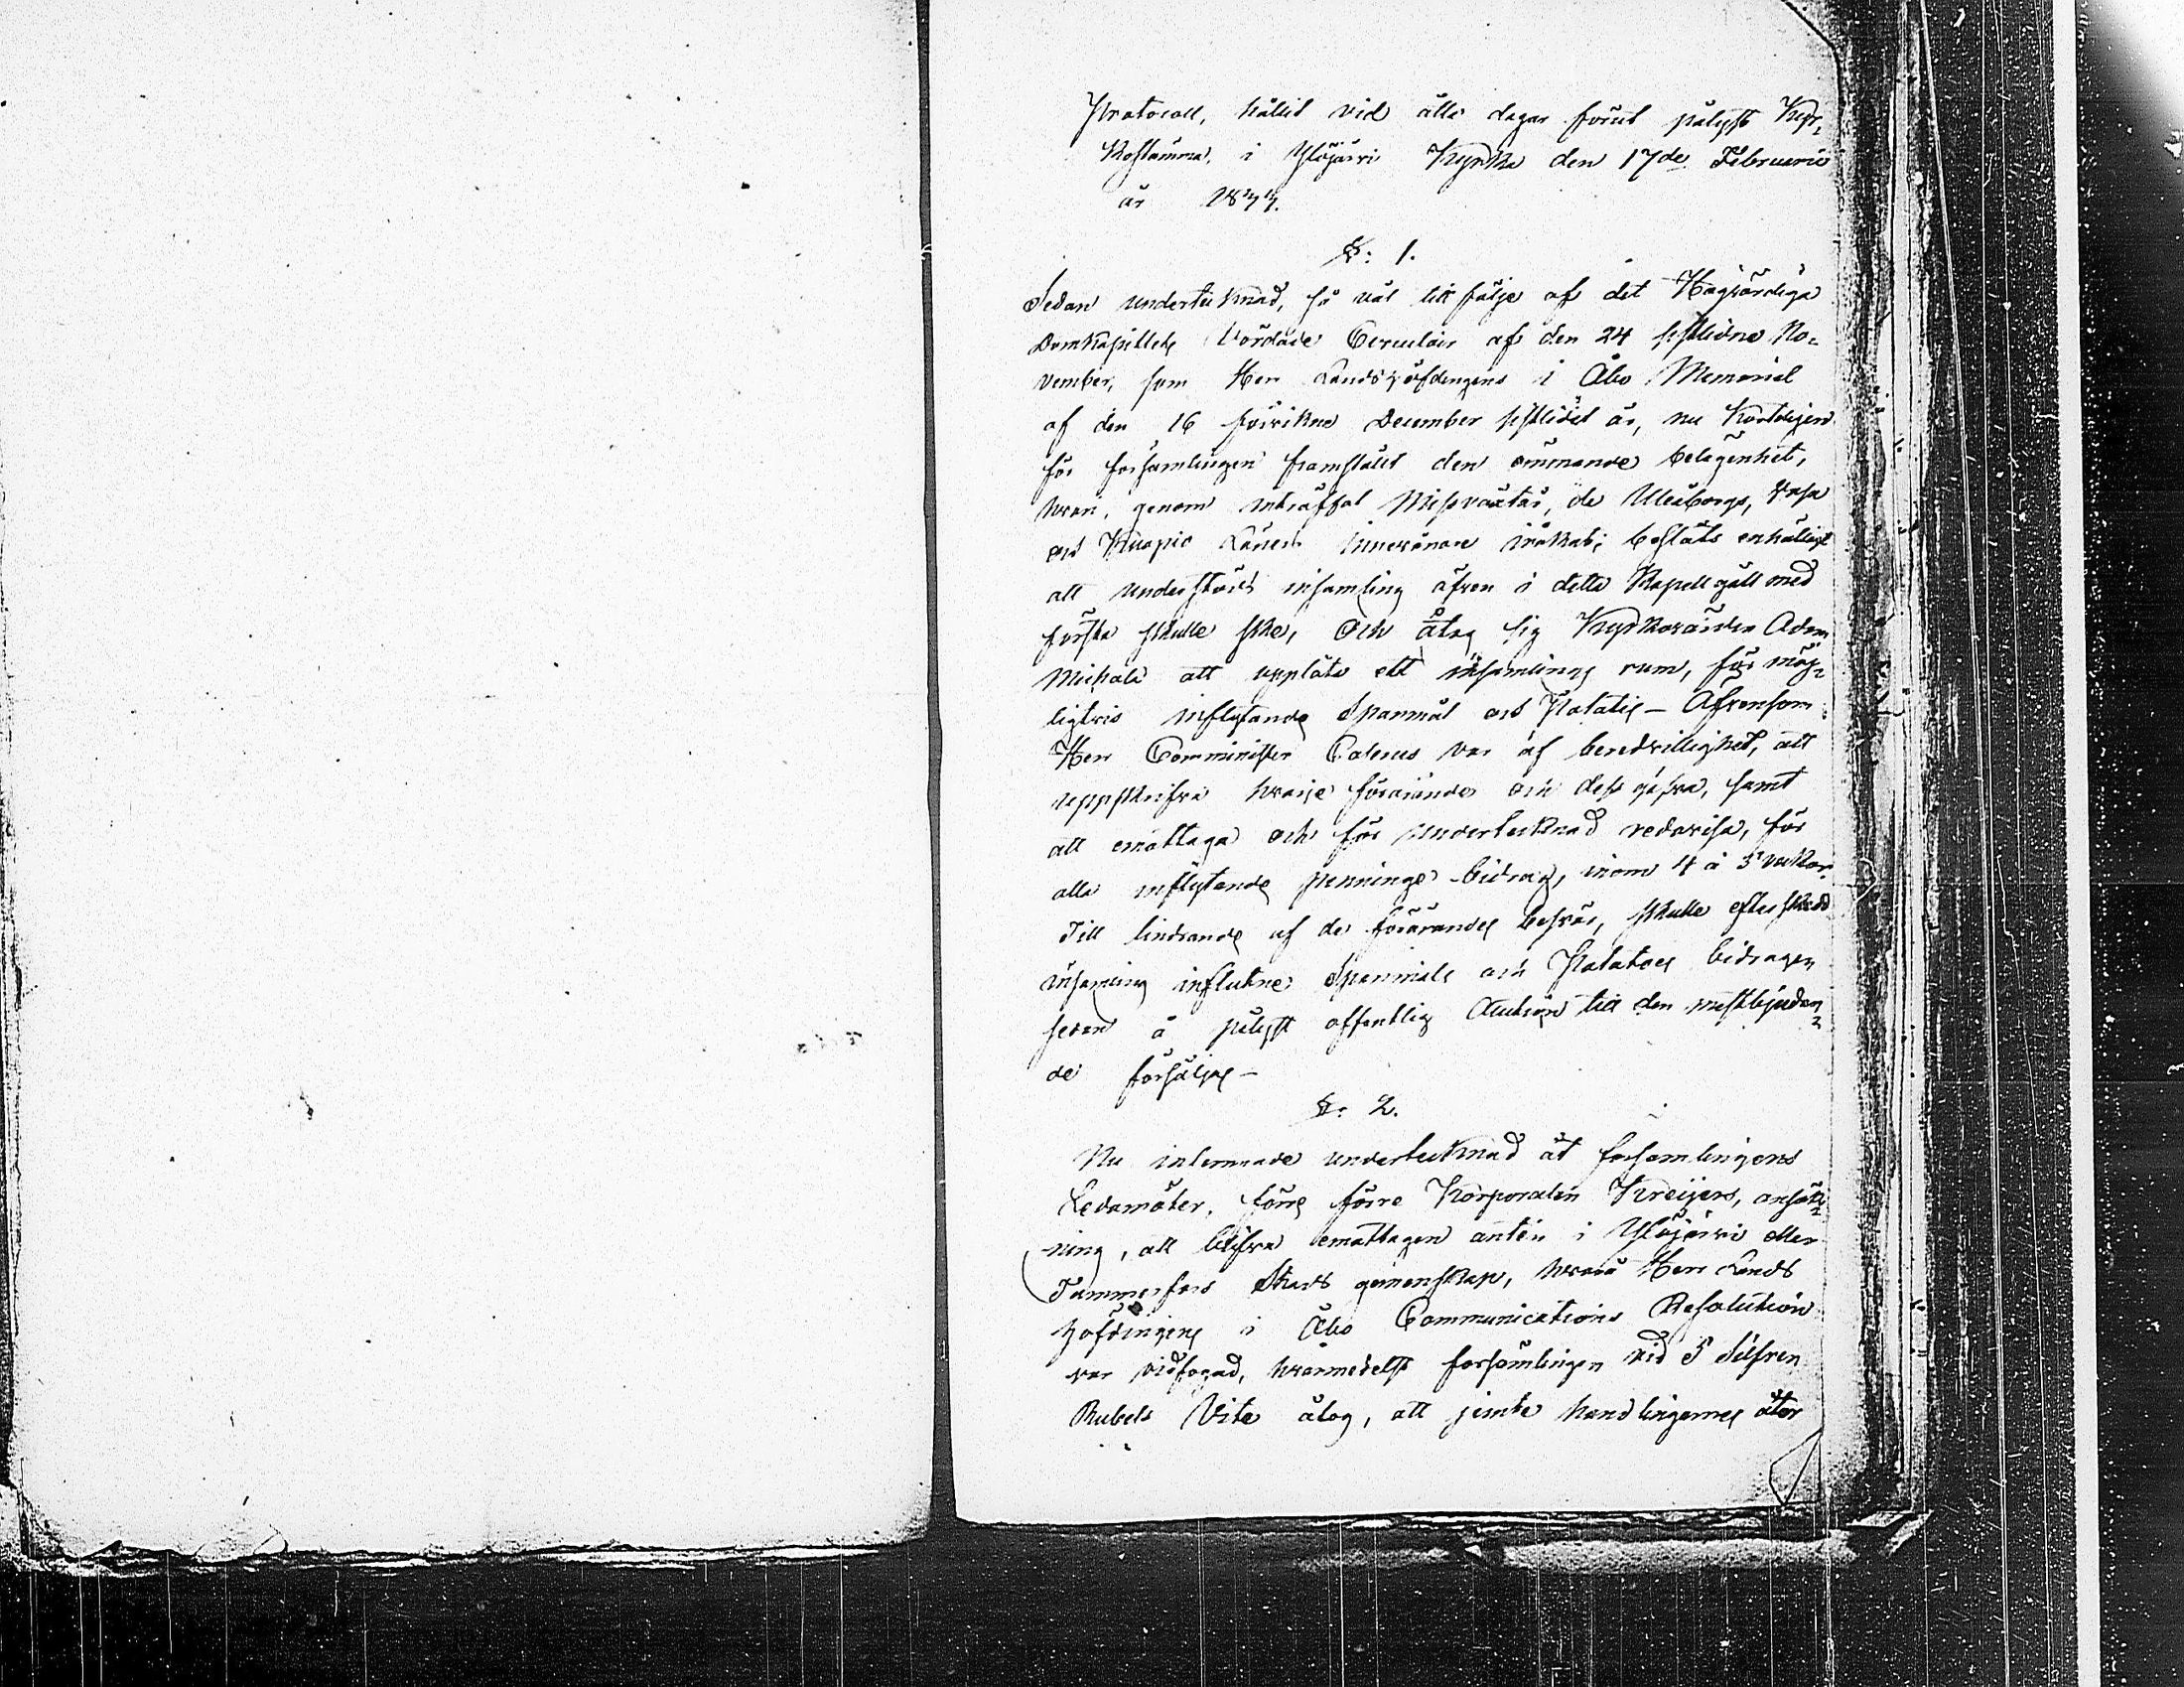 Protocoll, hållit vid åtta dagar förut pålyst Kyr-
kostämma, i Ylöjärvi Kyrka den 17de Februarii
år 1833.
§: 1.
Sedan undertecknad, så väl till följe af det Högvördiga
Domkapitlets Vördade Circulair af den 24 sistledne No-
vember, som Herr Landshöfdingens i Åbo Memorial
af den 16 December sistledet år, nu
för församlingen framstält den ömmande belägenhet,
hvari, genom inträffat Missväxtår, de Uleåborgs, Vasa
och Kuopio Läners innevånare råkat; beslöts enhälligt
att understöds insamling äfven i detta Kapellgäll med
första skulle ske, Och åtog sig Kyrkovärden Adam
Mickola att upplåta ett insamlings rum, för möj-
ligtvis inflytande Spanmål och Potates - Äfvensom
Herr Comminister Calenus var af beredvillighet, att
uppskrifva hvarje förärande och dess gåfva, samt
att emottaga och för undertecknad redovisa, för
alla inflytande penninge-bidrag, inom 4 à 5 veckor.
Till lindrande af de förärandes besvär, skulle efter skedd
insamling influtne Spanmåls och Potatoes bidragen
sedan å pålyst offentlig Auction till den mestbjudan-
de försäljas -
§: 2.
Nu inlemnade undertecknad åt församlingens
Ledamöter, förre Korporalen Kreijers, ansök-
ning, att blifva emottagen antên i Ylöjärvi eller
Tammerfors Stads gemenskap, hvarå Herr Lands
höfdingens i Åbo Communications Resolution
var vidfogad, hvarmedelst församlingen vid 5 Silfver
Rubels Vite ålog, att jemte handlingarnes åter